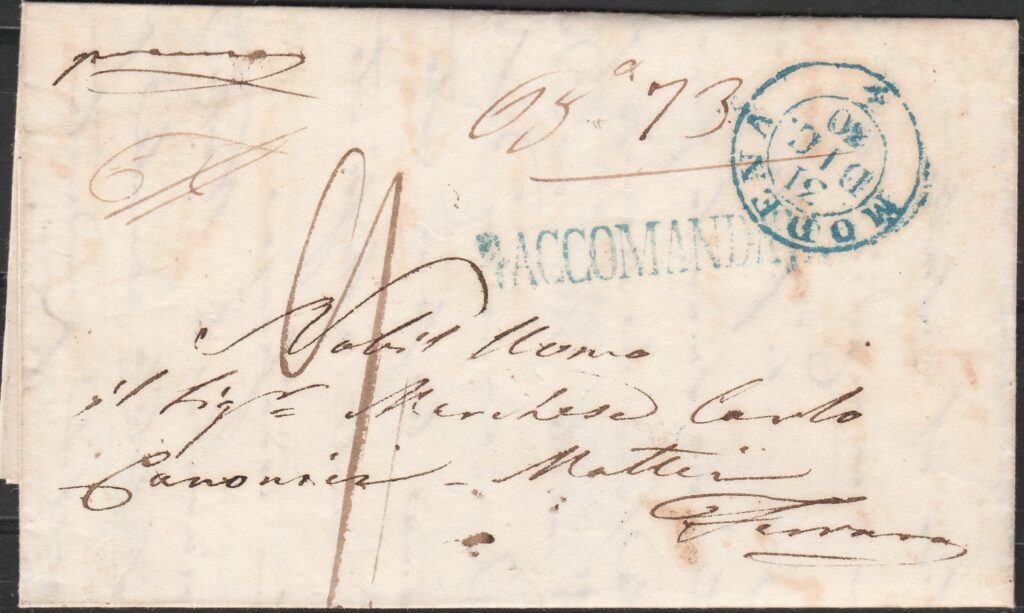 73
MODENA
21
DIC.
40
RACCOMANDA
Nobil Uomo
il Sigr Marchese Carlo
Canonici - Mattei
Ferrara